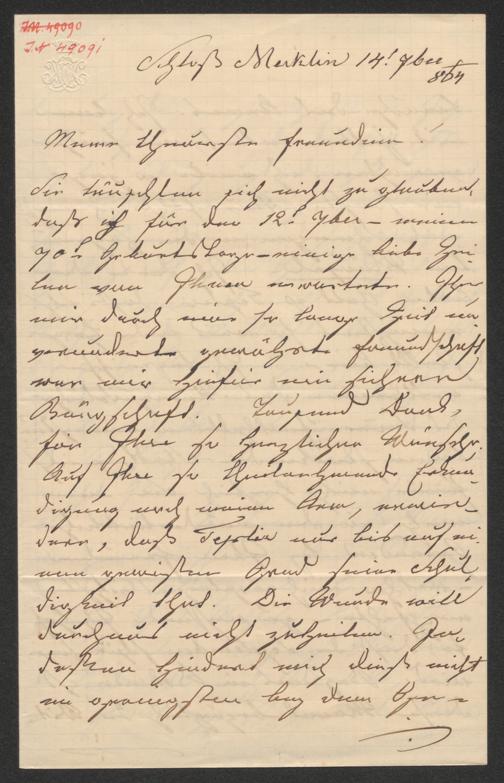 J.N. 49090
J.N. 49091
Schloß Merklin 14t 7ber
864
Meine theuerste Freundinn!
Sie täuschten sich nicht zu glauben,
daß ich für den 12t 7ber – meinen
70t Geburtstage – einige liebe Zei-
len von Ihnen erwartete. Ihre
mir durch eine so lange Zeit un
verändert gewährte Freundschaft
war mir hiefür ein sicherer
Bürgschaft. Tausend Dank,
für Ihre so herzlichen Wünsche.
Auf Ihre so theilnehmende Erkun-
digung nach meinem Arm, erwie-
dere, daß Teplitz nur bis auf ei-
nen gewissen Grad seine Schul-
digkeit that. Die Wunde will
durchaus nicht zuheilen. In-
dessen hindert mich dieß nicht
im geringsten bey dem